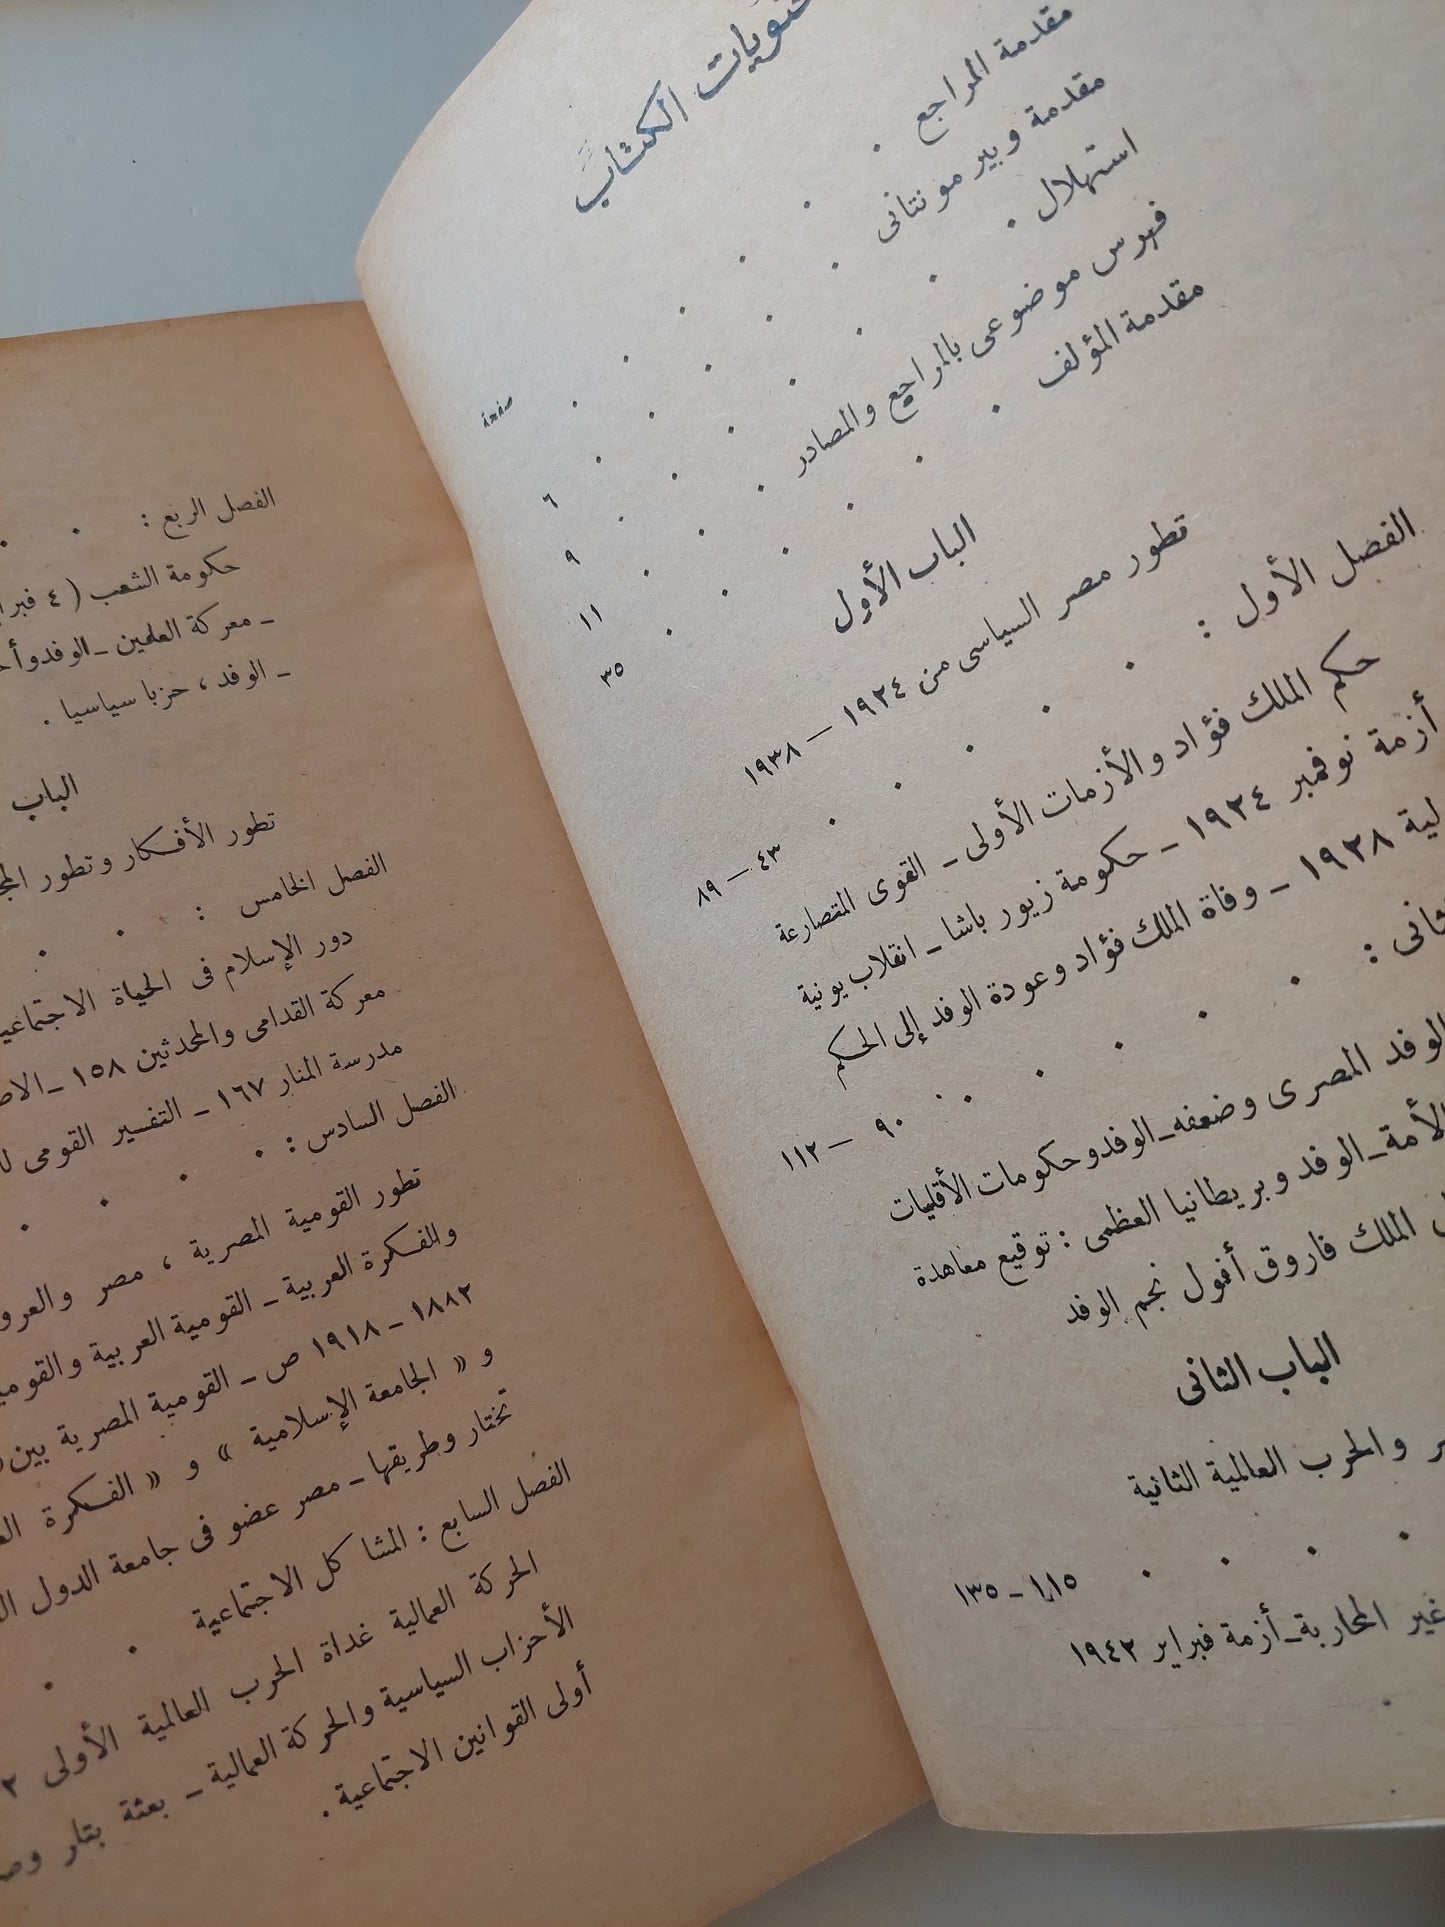 الكتاب
مقدمة المراجع
مقدمة وبير مونتانى
استهلال
فهرس موضوعى بالمراجع والمصادر
مقدمة المؤلف
صفحة
٦
٩
١١
٣٥
الباب الأول
تطور مصر السياسى من ١٩٢٤ — ١٩٣٨
الفصل الأول :
٤٣ — ٨٩
حكم الملك فؤاد والأزمات الأولى ـ القوى المتصارعة
أزمة نوفمبر ١٩٢٤ ـ حكومة زيور باشا ـ انقلاب يونية
لية ١٩٢٨ ـ وفاة الملك فؤاد وعودة الوفد إلى الحكم
ثانى :
٩٠ — ١١٢
الوفد المصرى وضعفه ـ الوفد وحكومات الأقليات
الأمة ـ الوفد وبريطانيا العظمى : توقيع معاهدة
الملك فاروق أفول نجم الوفد
الباب الثانى
ر والحرب العالمية الثانية
١١٥ ـ ١٣٥
غير المحاربة ـ أزمة فبراير ١٩٤٢
الفصل الربع :
حكومة الشعب ( ٤
ـ معركة العلمين ـ الوفد
ـ الوفد ، حزبا سياسيا .
الباب
تطور الأفكار وتطور
الفصل الخامس :
دور الإسلام فى الحياة
معركة القدامى والمحدثين ١٥٨ ـ
مدرسة المنار ١٦٧ ـ التفسير القومى
الفصل السادس :
تطور القومية المصرية ، مصر
والفكرة العربية ـ القومية العربية
١٨٨٢ ـ ١٩١٨ ص ـ القومية المصرية بين
و « الجامعة الإسلامية » و « الفكرة
تختار وطريقها ـ مصر عضو فى جامعة الدول
الفصل السابع : المشاكل الاجتماعية
الحركة العمالية غداة الحرب العالمية الأولى
الأحزاب السياسية والحركة العمالية ـ بعثة بتلر
أولى القوانين الاجتماعية .